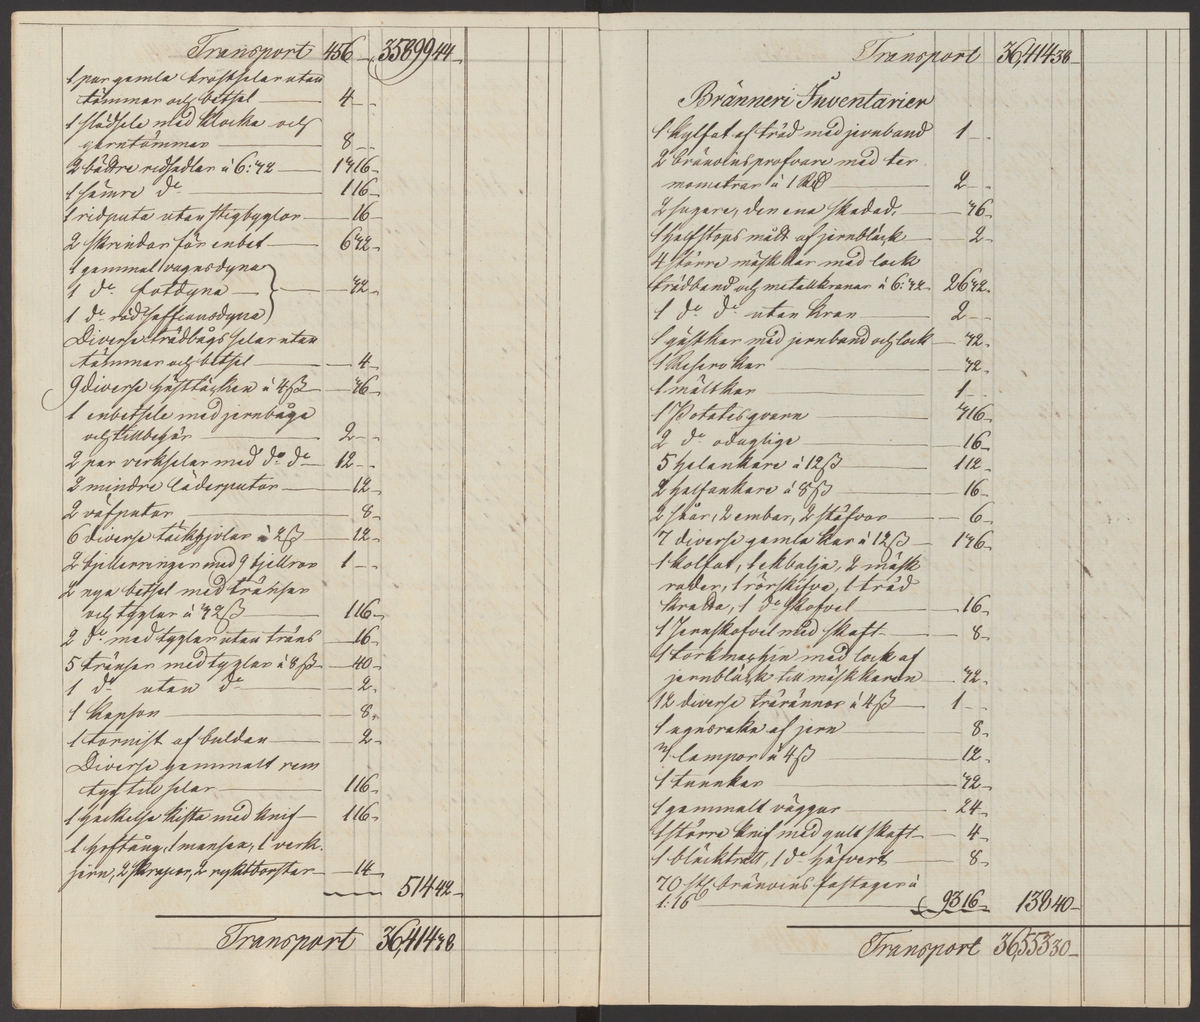 Transport 456 " 35899 44
1 par gamla trostselar utan
tömmar och betsel 4 " "
1 slädsele med klocka och
garntömmar 8 " "
2 bättre ridsadlar á 6: 32 13 16
1 sämre do 1 16
1 ridputa utan stigbyglor 16
2 skrindor för enbet 6 32
1 gammal vagnsdyna
1 do fotdyna 32
1 do röd saffiansdyna
Diverse trädbågsselar utan
tömmar och betsel 4
9 diverse hästtäcken á 4 ß 36
1 enbetsele med jernbåge
och tillbehör 2 " "
2 par verkselar med do do 12 " "
2 mindre läderputor 12
2 väfputor 8
6 diverse täckgjolar á 2 ß 12
2 bjellerringar med 9 bjellror 1 " "
2 nya betsel med tränsar
och tyglar á 32 ß 1 16
2 do med tyglar utan träns 16
5 tränsar med tyglar á 8 ß 40
1 do utan do 2
1 Kapson 8
1 tornist af buldan 2
Diverse gammalt rem
tyg till selar 1 16
1 hackelse kista med knif 1 16
1 hoftång, 1 mansen, 1 verk
jern, 2 skrapor, 2 ryktborstar 14
514 42
Transport 36,414 38
Transport 36,414 38
Bränneri Inventarier
1 kylfat af träd med jernband 1 " "
2 bränvinsprofvare med ter
mometrar á 1 Rd 2 " "
2 sugare, den ena skadad, 36
1 halfstops mått af jernbläck 2
4 större mäskkar med lock
trädband och metallkranar á 6: 32 26 32
1 do do utan kran 2 " "
1 gästkar med jernband och lock 32
1 Reservkar 32
1 mältkar 1 " "
1 Potatesqvarn 3 16
2 do odugliga 16
5 helankare á 12 ß 1 12
2 halfankare á 8 ß 16
2 såar, 2 embar, 2 stäfvor 6
7 diverse gamla kar á 12 ß 1 36
1 kolfat, 1 ekbalja, 2 mäsk
roder, 1 rörskofve, 1 träd
kratta, 1 do skofvel 16
1 Jernskofvel med skaft 8
1 torkmaskin med lock af
jernbläck till mäskkaren 32
12 diverse trärännor á 4 ß 1 " "
1 ugnsraka af jern 8
3 lampor á 4 ß 12
1 tunnkar 32
1 gammalt väggur 24
1 större knif med gult skaft 4
1 bläcktratt, 1 do häfvert 8
70 st bränvins fastager á
1: 16 93 16 138 40
Transport 36,553 30